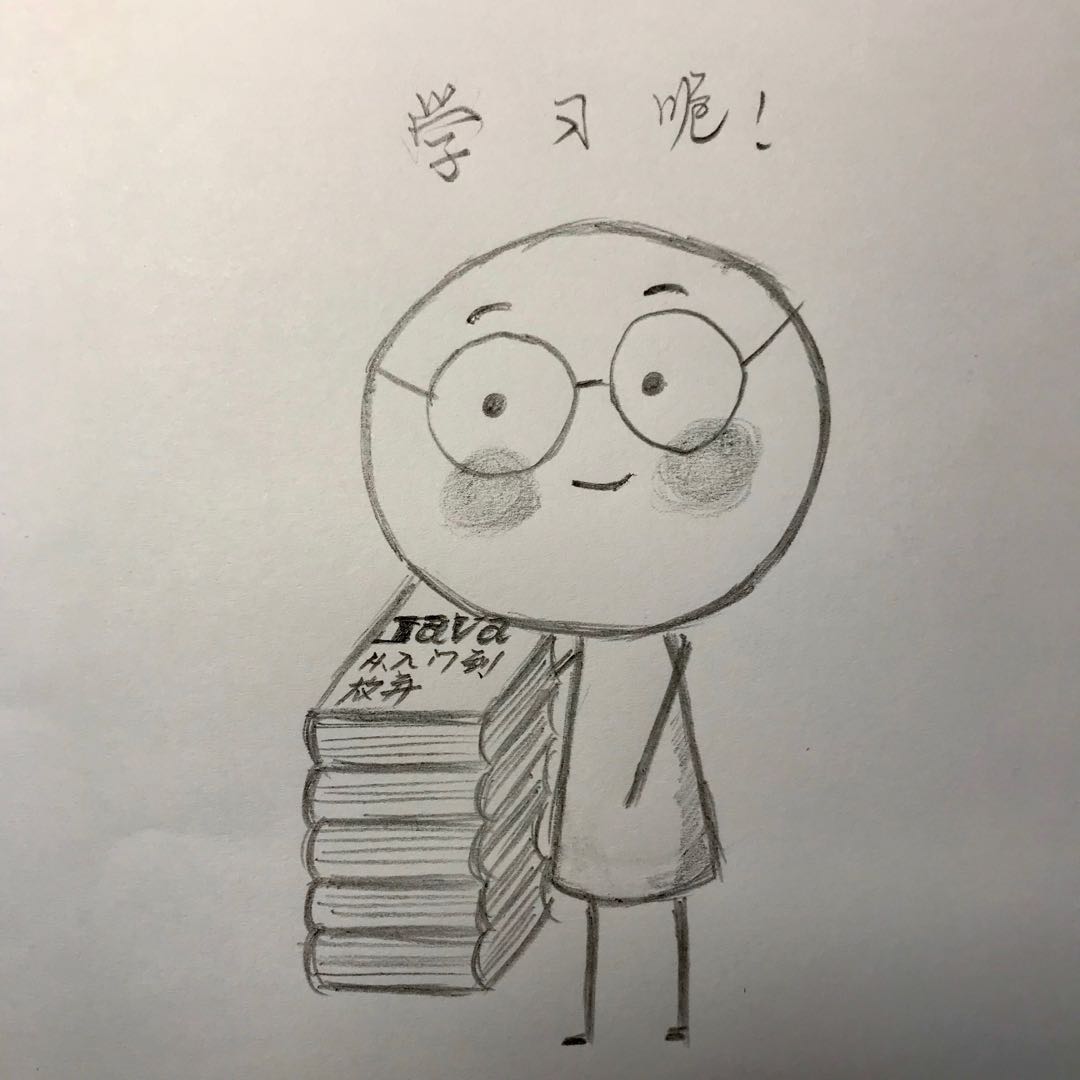 学习呢！
Java
从入门到
放弃